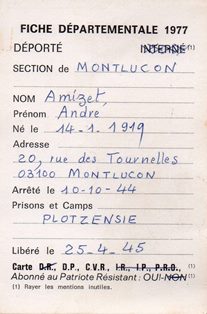 FICHE DÉPARTEMENTALE 1977
DÉPORTÉ INTERNÉ (1)
SECTION de MONTLUCON
NOM Amizet,
Prénom André
Né le 14.1.1919
Adresse
20, rue des Tournelles
03100 MONTLUCON
Arrêté le 10-10-44
Prisons et Camps
PLOTZENSIE
Libéré le 25-4-45
Carte D.R., D.P., C.V.R., I.R., I.P., P.R.O., (1)
Abonné au Patriote Résistant : OUI-NON (1)
(1) Rayer les mentions inutiles.